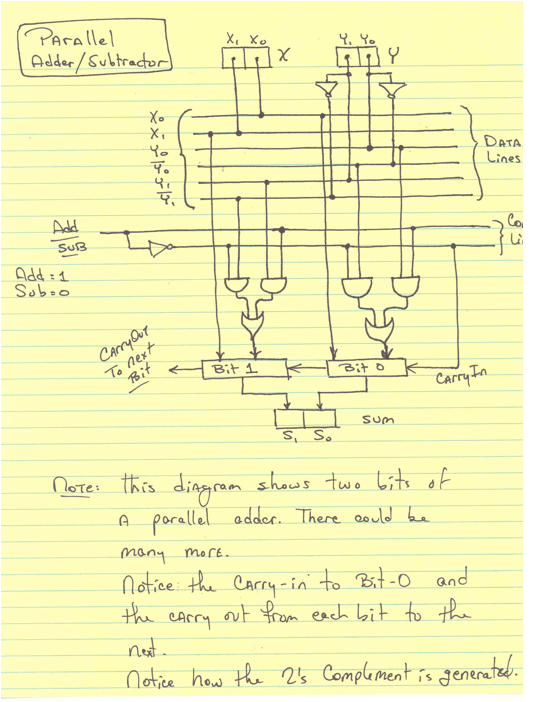 Parallel
Adder/Subtractor
X₁ X₀ X
Y₁ Y₀ Y
X₀
X₁
Y₀
Y̅₀
Y₁
Y̅₁
DATA
Lines
Add
SUB
Add = 1
Sub = 0
Co
Li
CArryOut
To next
Bit
Bit 1
Bit 0
CArry In
S₁ S₀
sum
Note: This diagram shows two bits of
A parallel adder. There could be
many more.
Notice the CArry-in to Bit-0 and
the cArry out from each bit to the
next.
Notice how the 2's Complement is generated.